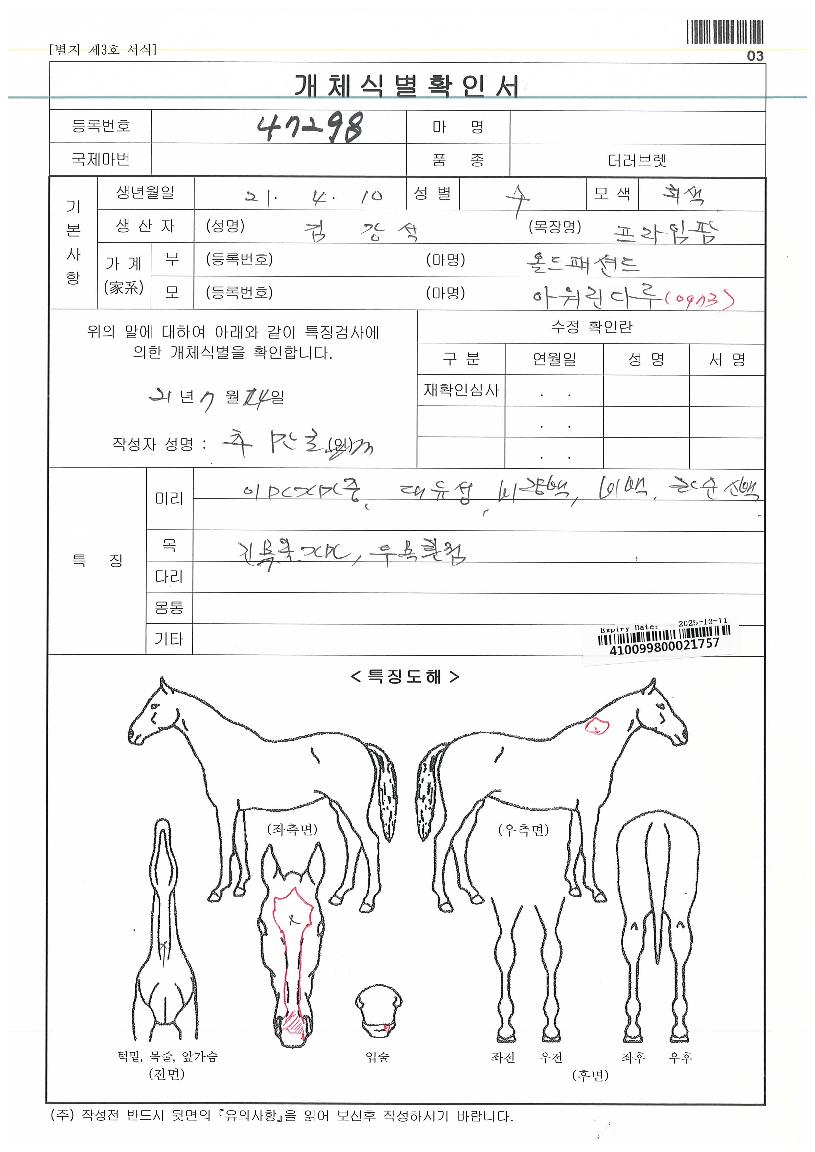 [별지 제3호 서식]
03
개체식별확인서
등록번호 47298 마 명
국제마번 품 종 더러브렛
기본사항
생년월일 21. 4. 10 성 별 수 모 색 회색
생 산 자 (성명) 김 강 석 (목장명) 프라임팜
가 계 (家系)
부 (등록번호) (마명) 올드패션드
모 (등록번호) (마명) 아워린다루
위의 말에 대하여 아래와 같이 특징검사에
의한 개체식별을 확인합니다.
21년 7월 14일
작성자 성명 : (인)
수정 확인란
구 분 연월일 성 명 서 명
재확인심사 . .
. .
. .
특 징
머리 대유성, 비량백, 비백,
목
다리
몸통
기타
Expiry Date: 2025-12-11
410099800021757
< 특징도해 >
(좌측면) (우측면)
턱밑, 목줄, 앞가슴
(전면)
입술
좌전 우전 좌후 우후
(후면)
(주) 작성전 반드시 뒷면의 『유의사항』을 읽어 보신후 작성하시기 바랍니다.